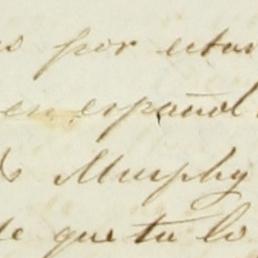 por estar
en español
Murphy
de que tu lo